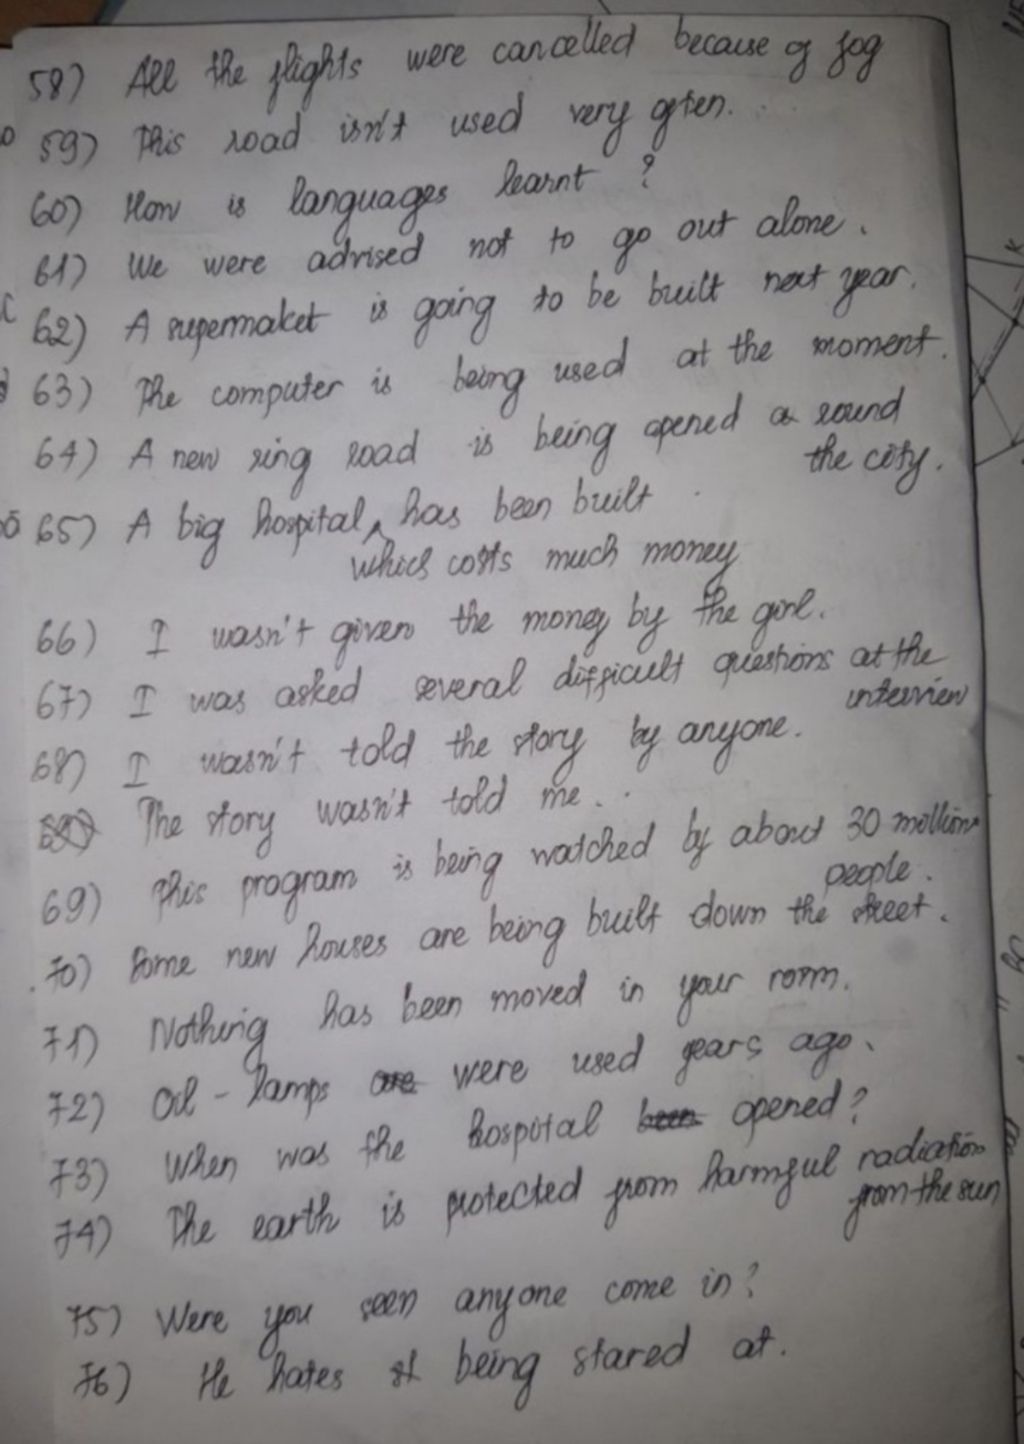 58) All the flights were cancelled because of fog
59) This road isn't used very often.
60) How is languages learnt ?
61) We were advised not to go out alone.
62) A supermaket is going to be built next year.
63) The computer is being used at the moment.
64) A new ring road is being opened a round
the city.
65) A big hospital has been built
which costs much money
66) I wasn't given the money by the girl.
67) I was asked several difficult questions at the
interview
68) I wasn't told the story by anyone.
The story wasn't told me.
69) This program is being watched by about 30 million
people.
70) Some new houses are being built down the street.
71) Nothing has been moved in your room.
72) Oil - lamps are were used years ago.
73) When was the hospital been opened?
74) The earth is protected from harmful radiation
from the sun
75) Were you seen anyone come in?
76) He hates being stared at.